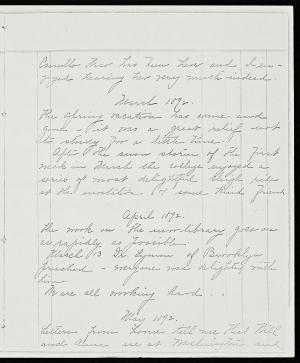 Camilla Thar has been here and I en-
joyed hearing her very much indeed.
March 1892.
The spring vacation has come and
gone - it was a great relief not
to study for a little time.
After the snow storm of the first
week in March the college enjoyed a
series of most delightful sleigh rides
at the invitation of some kind friend
April 1892.
The work on the new library goes on
as rapidly as possible.
March 13 Dr. Lyman of Brooklyn
preached - everyone was delighted with
him
We are all working hard . .
May 1892.
Letters from home tell me that Will
and are at Washington and